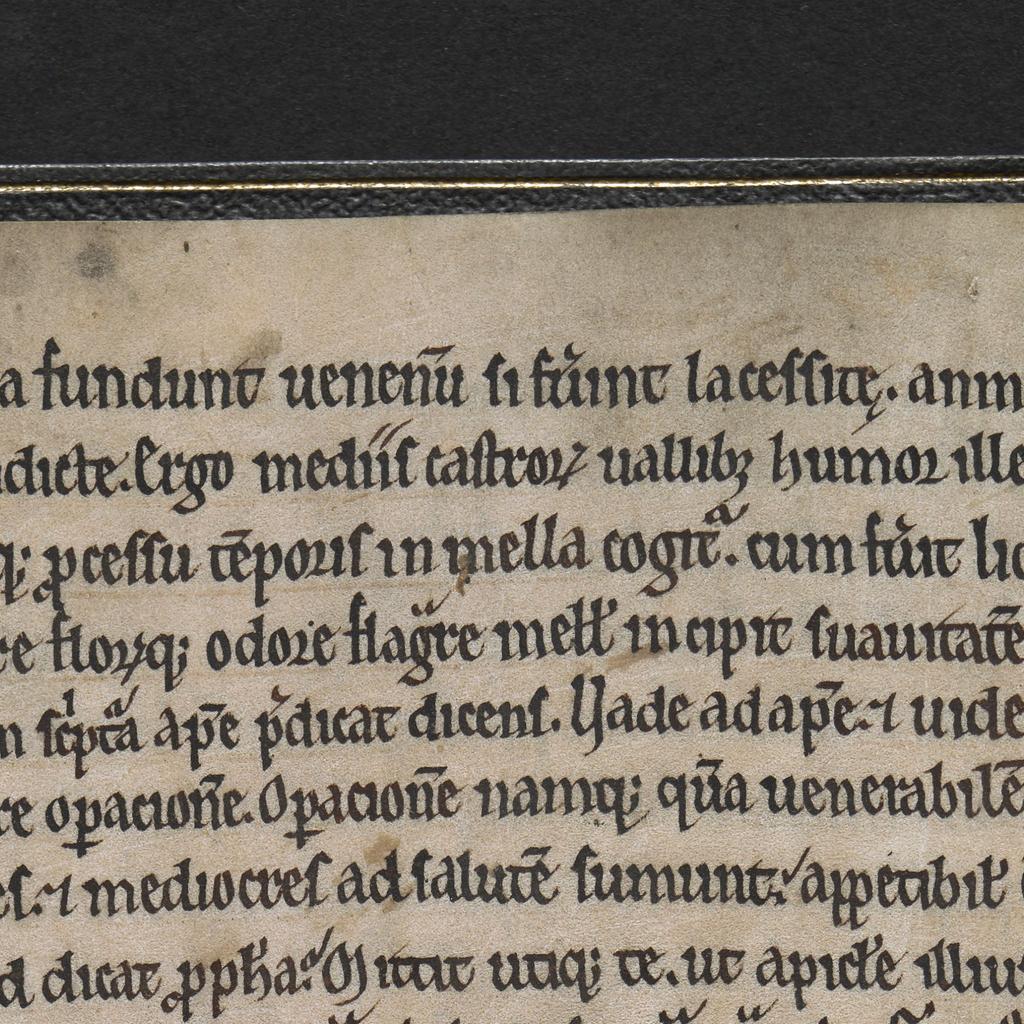 a fundunt uenenū si fűint lacessitę. anim
dicte. Ergo mediis castroꝝ uallibꝫ humor ille
q; ꝓcessu tēporis in mella cogitᷓ. cum fűit liq
re floꝝq; odore flag̃re mell̕ incipit suauitatē
sc̕ptᷓa apē p̕dicat dicens. Vade ad apē. ⁊ uide
re oꝑationē. Oꝑationē namq; qūa uenerabilē
es. ⁊ mediocres ad salutē sumunt. appetibil̕
d dicat ꝓph̕a. Mittit utiq; te. ut apicl̕e illius